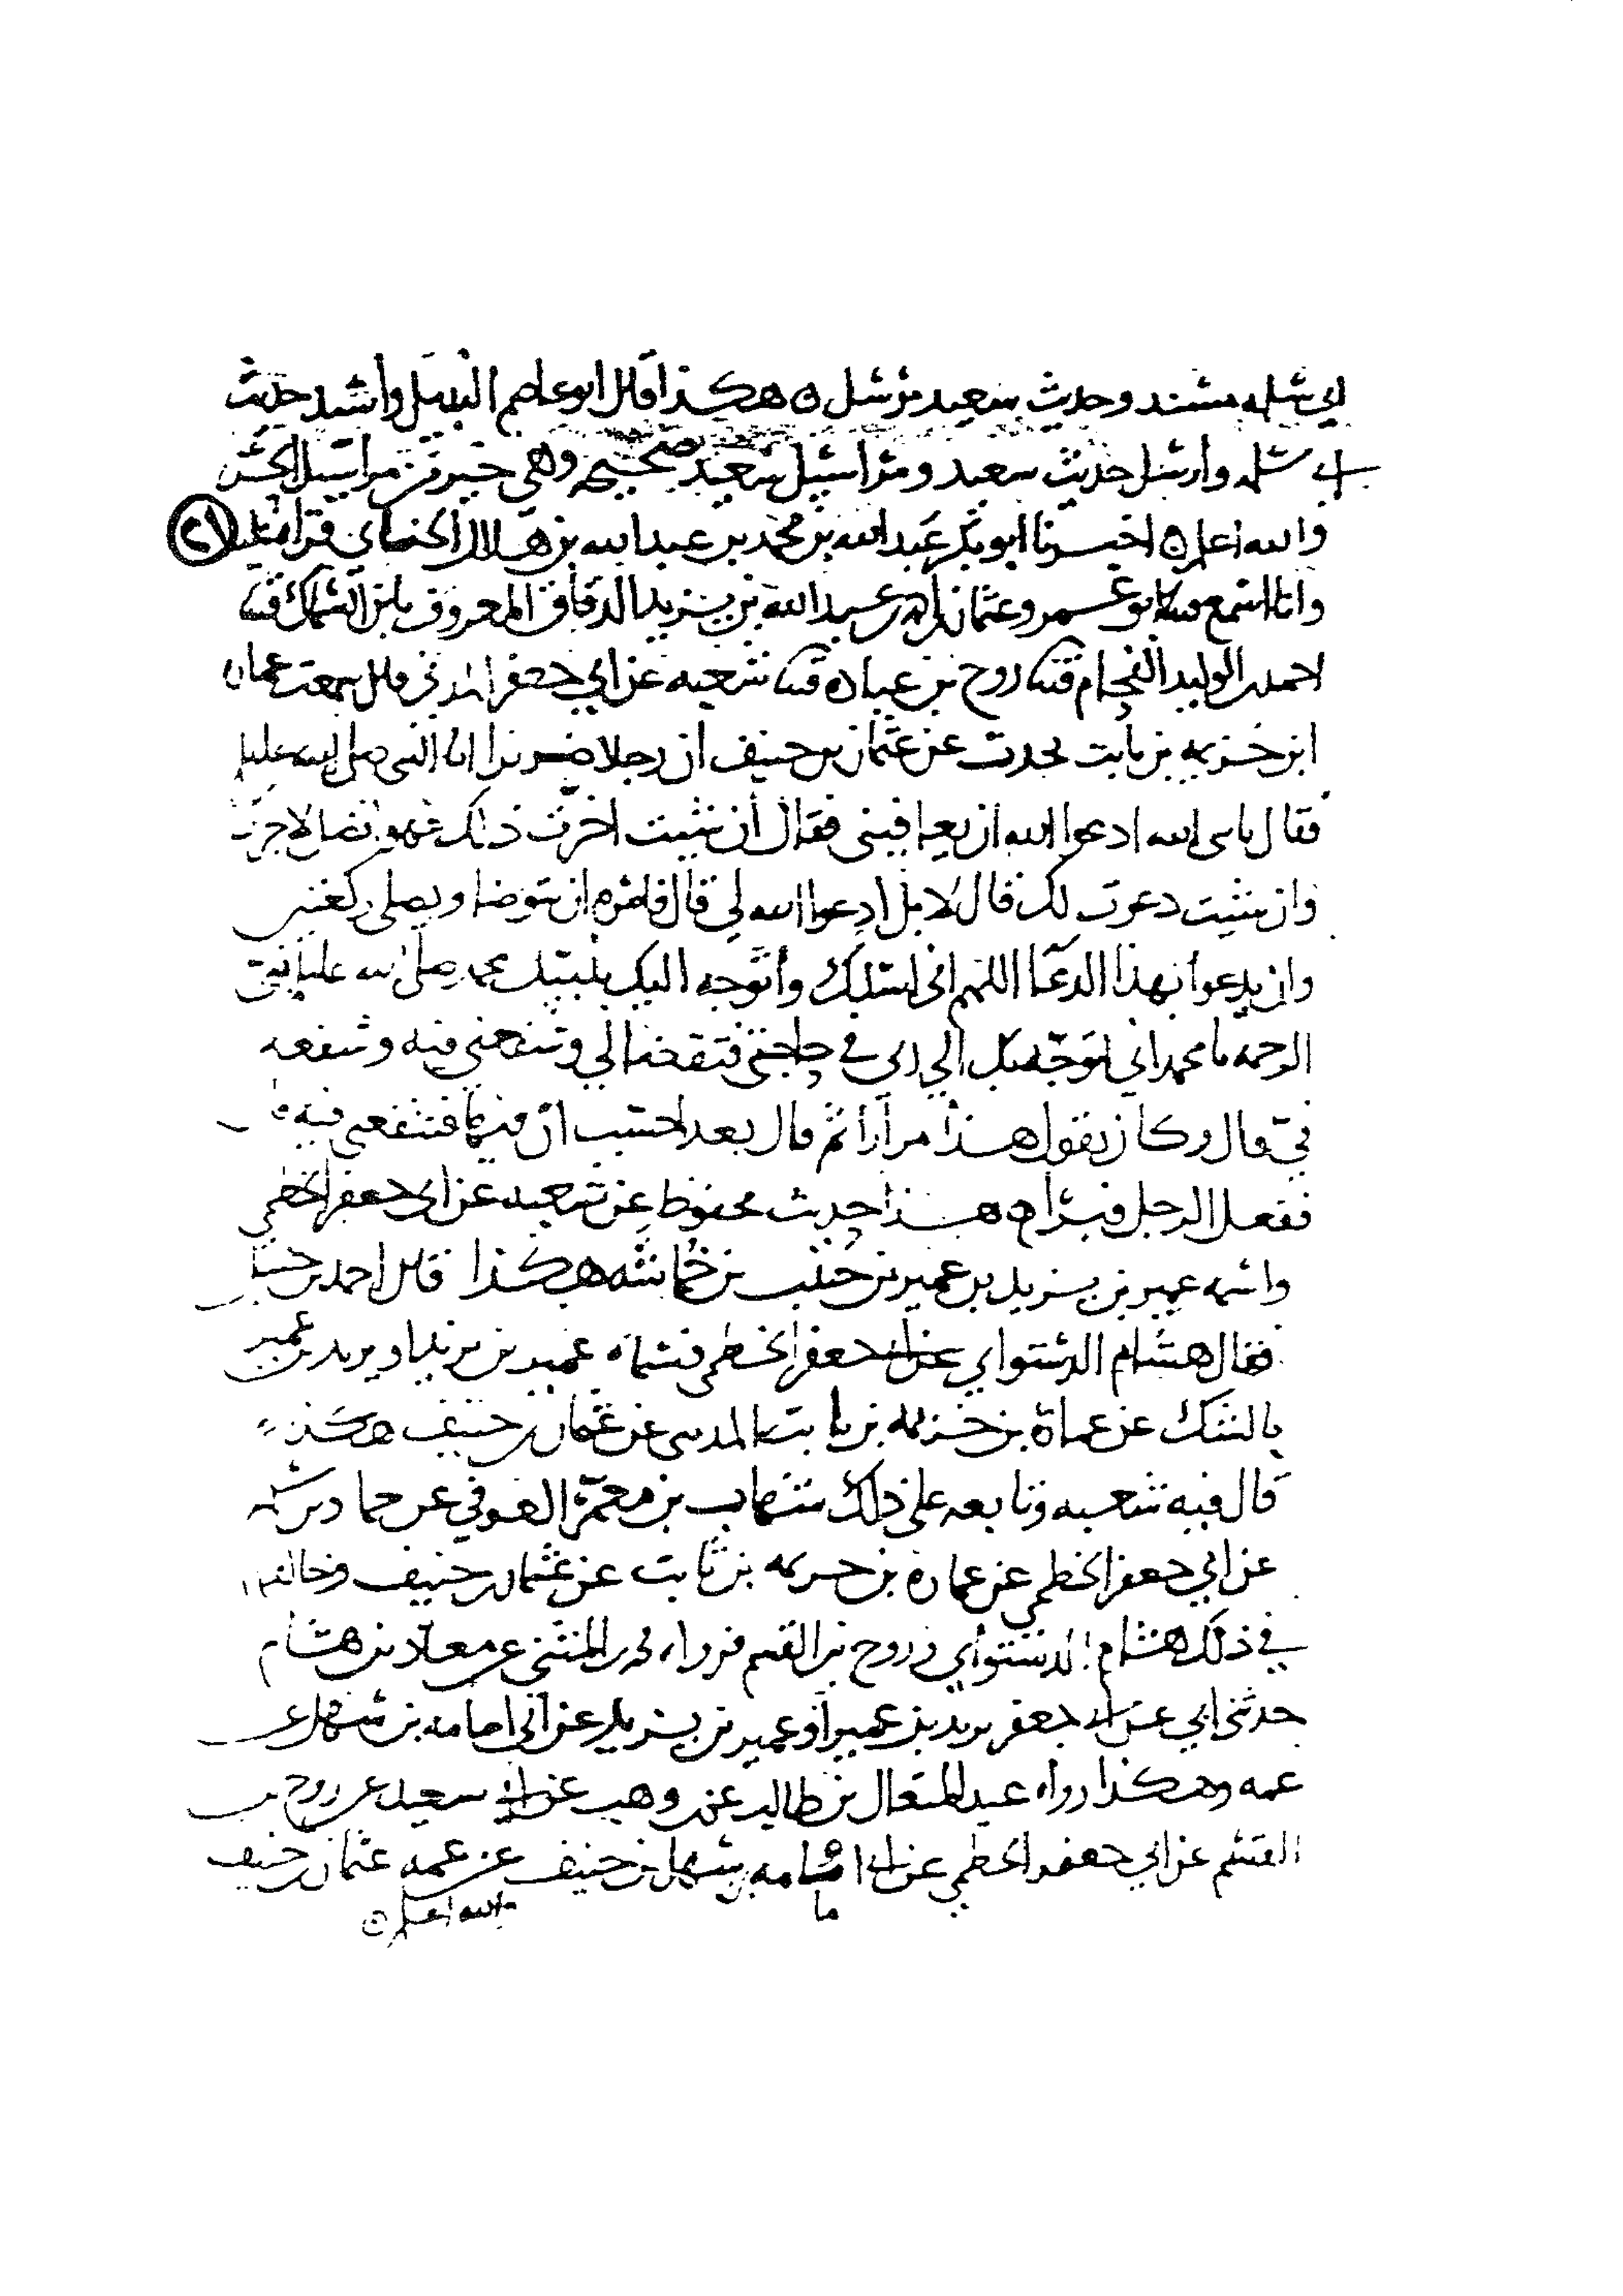 ابي سلمه مسند وحديث سعيد مرسل ه هكذا قال ابو عاصم النبيل واسند حديث
ابي سلمه وارسل حديث سعيد ومراسيل سعيد صحيحه وهي خير من مراسيل الحسن
والله اعلم ه اخبرنا ابو بكر عبد الله بن محمد بن عبد الله بن هلال الحنائي قراة عليه (٢١)
وانا اسمع ثنا ابو عمرو عثمان بن احمد بن عبد الله بن يزيد الدقاق المعروف بابن السماك ثنا
احمد بن الوليد الفحام ثنا روح بن عباده ثنا شعبه عن ابي جعفر المدني قال سمعت عماره
ابن خزيمه بن ثابت يحدث عن عثمان بن حنيف ان رجلا ضريرا اتا النبي صلى الله عليه
فقال يا نبي الله ادعوا الله ان يعافيني فقال ان شيت اخرت ذلك فهو افضل لاخرتك
وان شيت دعوت لك قال لا بل ادعوا الله لي قال فامره ان يتوضا ويصلي ركعتين
وان يدعوا بهذا الدعا اللهم اني اسئلك وأتوجه اليك بنبيك محمد صلى الله عليه نبي
الرحمه يا محمد اني اتوجه بك الي ربي في حاجتي فتقضا لي وتشفعني فيه وتشفعه
في قال وكان يقول هذا مرارا ثم قال بعد احسب ان فيها فتشفعني فيه قال
ففعل الرجل فبرأ ه هذا حديث محفوظ عن شعبه عن ابي جعفر الخطمي
واسمه عمير بن يزيد بن عمير بن حبيب بن خماشه هكذا قال احمد بن حنبل
فقال هشام الدستواي عن ابي جعفر الخطمي فسماه عمير بن يزيد او يزيد بن عمير
بالشك عن عمارة بن خزيمه بن ثابت المدني عن عثمان بن حنيف هكذي
قال فيه شعبه وتابعه على ذلك شهاب بن معمر العوفي عن حماد بن سلمه
عن ابي جعفر الخطمي عن عماره بن خزيمه بن ثابت عن عثمان بن حنيف وخالفهما
في ذلك هشام الدستواي وروح بن القسم فرواه محمد بن المثنى عن معاذ بن هشام
حدثني ابي عن ابي جعفر يزيد بن عمير او عمير بن يزيد عن ابي امامه بن سهل عن
عمه وهكذا رواه عبد المتعال بن طالب عن بن وهب عن ابي سعيد عن روح بن
القسم عن ابي جعفر الخطمي عن ابي امامه بن سهل بن حنيف عن عمه عثمان بن حنيف
ما والله اعلم ه